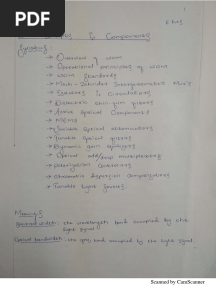 PDF
& Components
Syllabus
→ Overview of WDM
→ Operational principles of WDM
→ WDM Standards
→ Mach-Zehnder Interferometer
→ Isolators & Circulators
→ Active Optical Components
→ MEMS
→ Tunable Optical Attenuators
→ Tunable Optical
→ Dynamic gain equalizers
→ Optical add/drop multiplexers
→ Polarization Controllers
→ Chromatic dispersion Compensators
→ Tunable Light Sources
the wavelength band occupied by the
light signal
Optical bandwidth: the band occupied by the light signal
Scanned by CamScanner